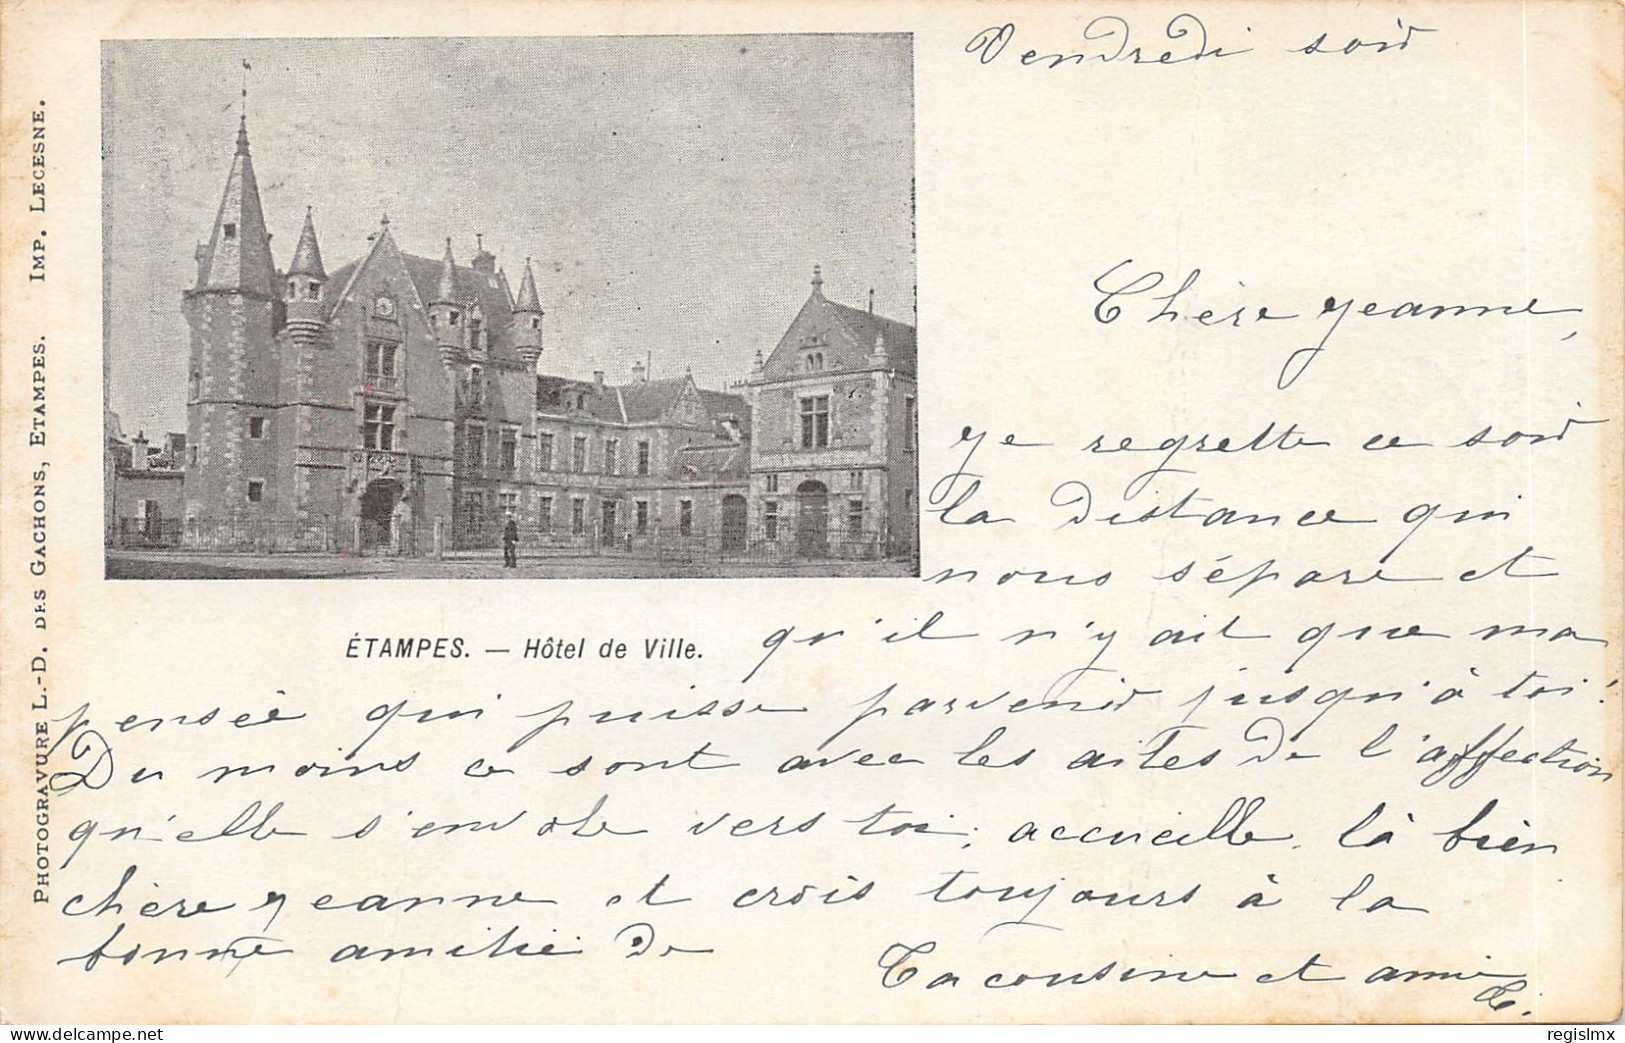 Vendredi soir
Chère Jeanne,
Je regrette ce soir
la distance qui
nous sépare et
qu'il n'y ait que ma
pensée qui puisse parvenir jusqu'à toi!
Du moins ce sont avec les ailes de l'affection
qu'elle s'envole vers toi; accueille là bien
chère Jeanne et crois toujours à la
bonne amitié de
Ta cousine et amie
C.
ÉTAMPES. — Hôtel de Ville.
PHOTOGRAVURE L.-D. DES GACHONS, ETAMPES. IMP. LECESNE.
regislmx